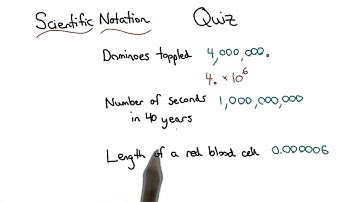 Scientific Notation Quiz
Dominoes toppled 4,000,000.
4. × 10⁶
Number of seconds 1,000,000,000
in 40 years
Length of a red blood cell 0.000006